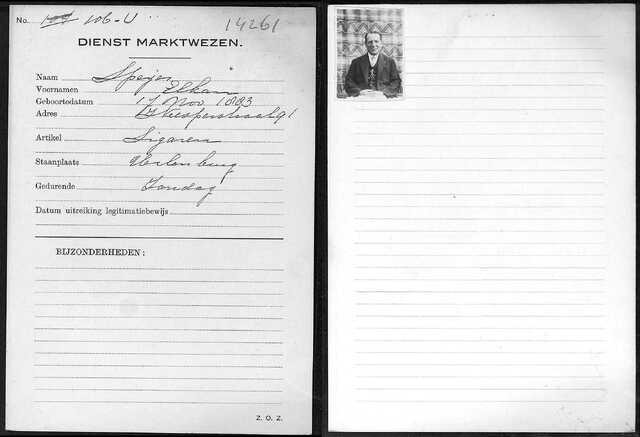 No. 106-U 14261
DIENST MARKTWEZEN.
Naam Speijer
Voornamen Elkan
Geboortedatum 17 Nov 1883
Adres Weesperstraat 91
Artikel Sigaren
Staanplaats Uilenburg
Gedurende Zondag
Datum uitreiking legitimatiebewijs
BIJZONDERHEDEN:
Z. O. Z.